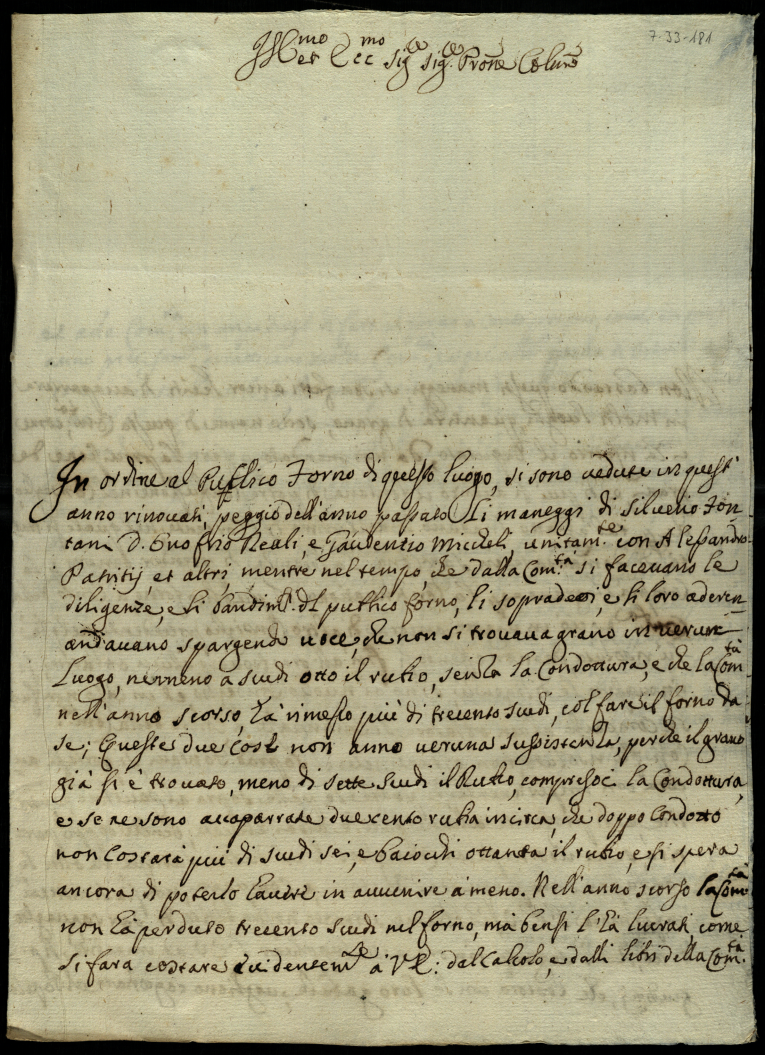 7-33-181
Ill.mo et Ecc.mo Sig.re Sig.re Prone Colmo
In ordine al Publico Forno di questo luogo, si sono vedute in quest'
anno rinovati, peggio dell'anno passato li maneggi di Silverio Fon
tani D. Onofrio Reali, e Gaudentio Micheli, unitam.te con Alessandro
Patritij, et altri, mentre nel tempo, che dalla Com.tà si facevano le
diligenze, e li bandim.ti del publico forno, li sopradetti, e li loro aderen
andavano spargendo voce, che non si trovava grano in verun
Luogo, nemeno a scudi otto il rubio, senza la Condottura, e che la Com.tà
nell'anno scorso, hà rimesso più di trecento scudi, col fare il forno da
se; Queste due cose non anno veruna sussistenza, perche il grano
già si è trovato, meno di sette scudi il Rubio, compresoci la Condottura,
e se ne sono accaparrate duecento rubia incirca, che doppo condotto
non costarà più di scudi sei, e baiocchi ottanta il rubio, e si spera
ancora di poterlo havere in avvenire a meno. Nell'anno scorso la Com.tà
non hà perduto trecento scudi nel forno, mà bensi l'hà lucrati, come
si fara costare evidentem.te à V.E: dal Calcolo, e dalli libri della Com.tà